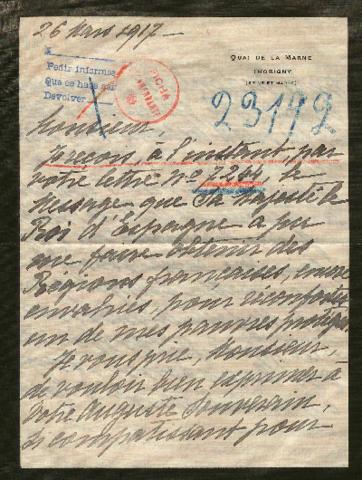 26 Mars 1917 -
QUAI DE LA MARNE
THORIGNY
Pedir informes
Que ce haga
Devolver
FICHA
23192
Monsieur,
Je reçois, à l'instant par
votre lettre no 7.264, le
Message que Sa Majesté le
Roi d'Espagne a pu
me faire obtenir des
Régions françaises, encore
envahies, pour réconforter
un de mes pauvres protégés.
Je vous prie, Monsieur,
de vouloir bien exprimer à
Votre Auguste Souverain,
si compatissant pour